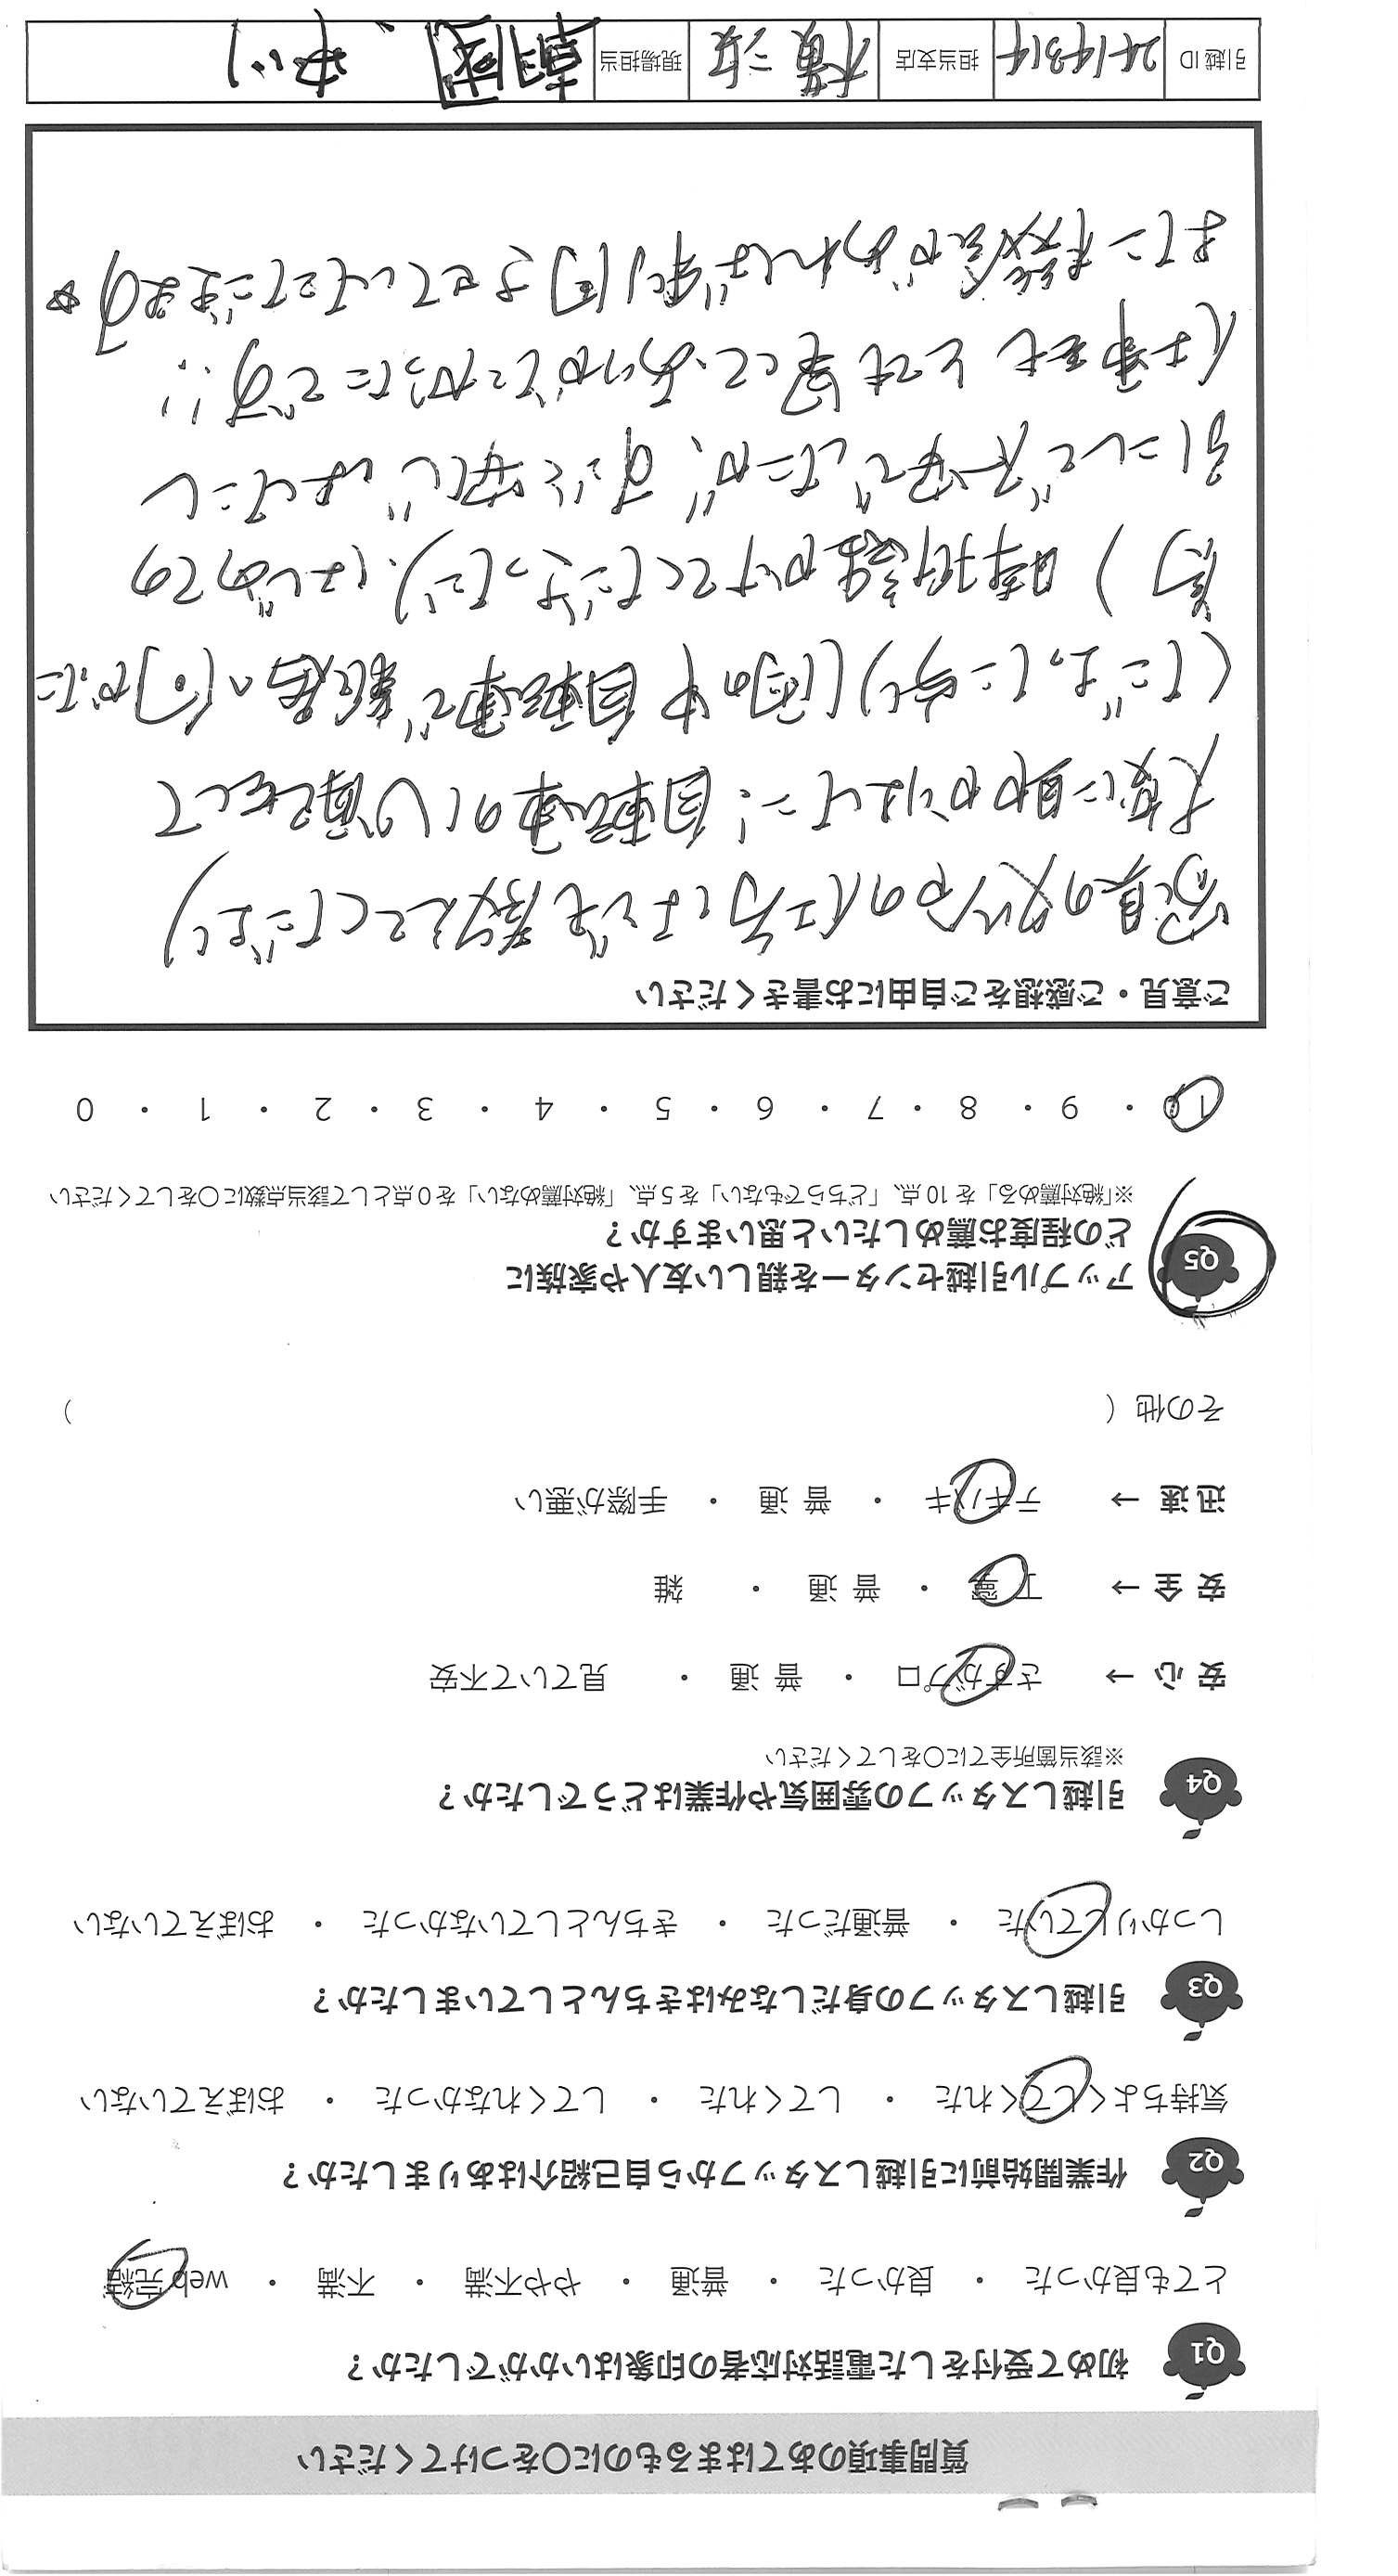 質問事項のあてはまるものに〇をつけてください
Q1 初めて受付をした電話対応者の印象はいかがでしたか？
とても良かった ・ 良かった ・ 普通 ・ やや不満 ・ 不満 ・ web完結
Q2 作業開始前に引越しスタッフから自己紹介はありましたか？
気持ちよくしてくれた ・ してくれた ・ してくれなかった ・ おぼえていない
Q3 引越しスタッフの身だしなみはきちんとしていましたか？
しっかりしていた ・ 普通だった ・ きちんとしていなかった ・ おぼえていない
Q4 引越しスタッフの雰囲気や作業はどうでしたか？
※該当箇所全てに〇をしてください
安心→ さすがプロ ・ 普通 ・ 見ていて不安
安全→ 丁寧 ・ 普通 ・ 雑
迅速→ テキパキ ・ 普通 ・ 手際が悪い
その他（ ）
Q5 アップル引越センターを親しい友人や家族に
どの程度お薦めしたいと思いますか？
※「絶対薦める」を10点、「どちらでもない」を5点、「絶対薦めない」を0点として該当点数に〇をしてください
10 ・ 9 ・ 8 ・ 7 ・ 6 ・ 5 ・ 4 ・ 3 ・ 2 ・ 1 ・ 0
ご意見・ご感想をご自由にお書きください
家具の分やの仕方なども教えてくださり
大変に助かりました！自転車のくり順をして
くださったり（雨の中自転車で新居へ向かった
時折話かけてくださったり、はじめての
引こしで不安でしたが、すごく安心しました
仕事もとても早くてありがたかったです!!
また機会があれば利用させていただきます☆
引越ID 2414314 担当支店 横浜 現場担当 朝国、中川